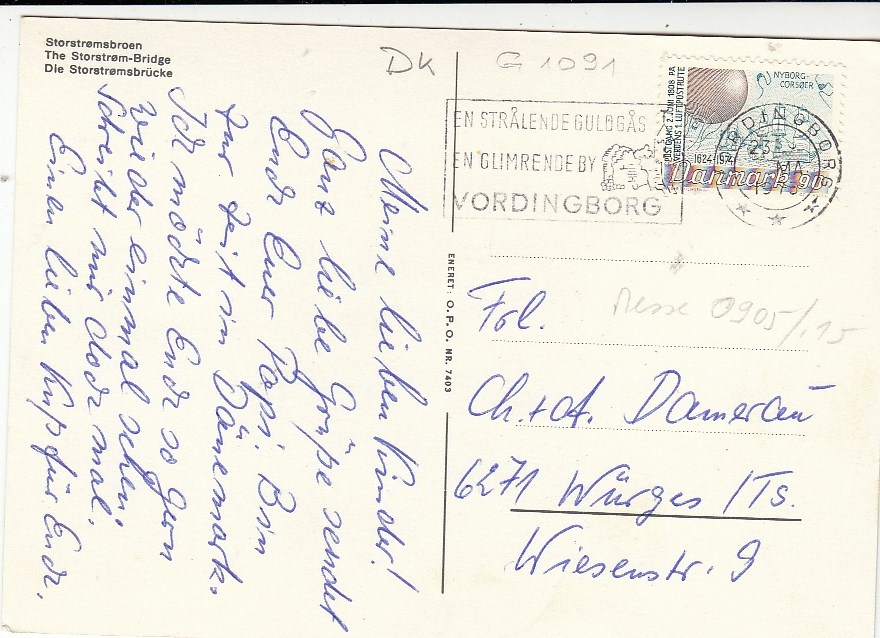 Storstrømsbroen
The Storstrøm-Bridge
Die Storstrømsbrücke
DK
G 1091
EN STRÅLENDE GULDGÅS
EN GLIMRENDE BY
VORDINGBORG
NYBORG-
CORSØER
POSTGAARDS 2. JUNI 1808 PÅ
VERDENS 1. LUFTPOSTRUTE
1624-1974
Danmark 90
VORDINGBORG
23.
Meine lieben Kinder!
Ganz liebe Grüße sendet
Euch Euer Papi. Bin
zur Zeit in Dänemark.
Ich möchte Euch so gern
wieder einmal sehen.
Schreibt mir doch mal.
Einen lieben Kuß für Euch.
ENERET: O.P.O. NR. 7403
Messe 0905/.15
Frl.
Ch. + A. Damerau
6271 Würges /Ts.
Wiesenstr. 9